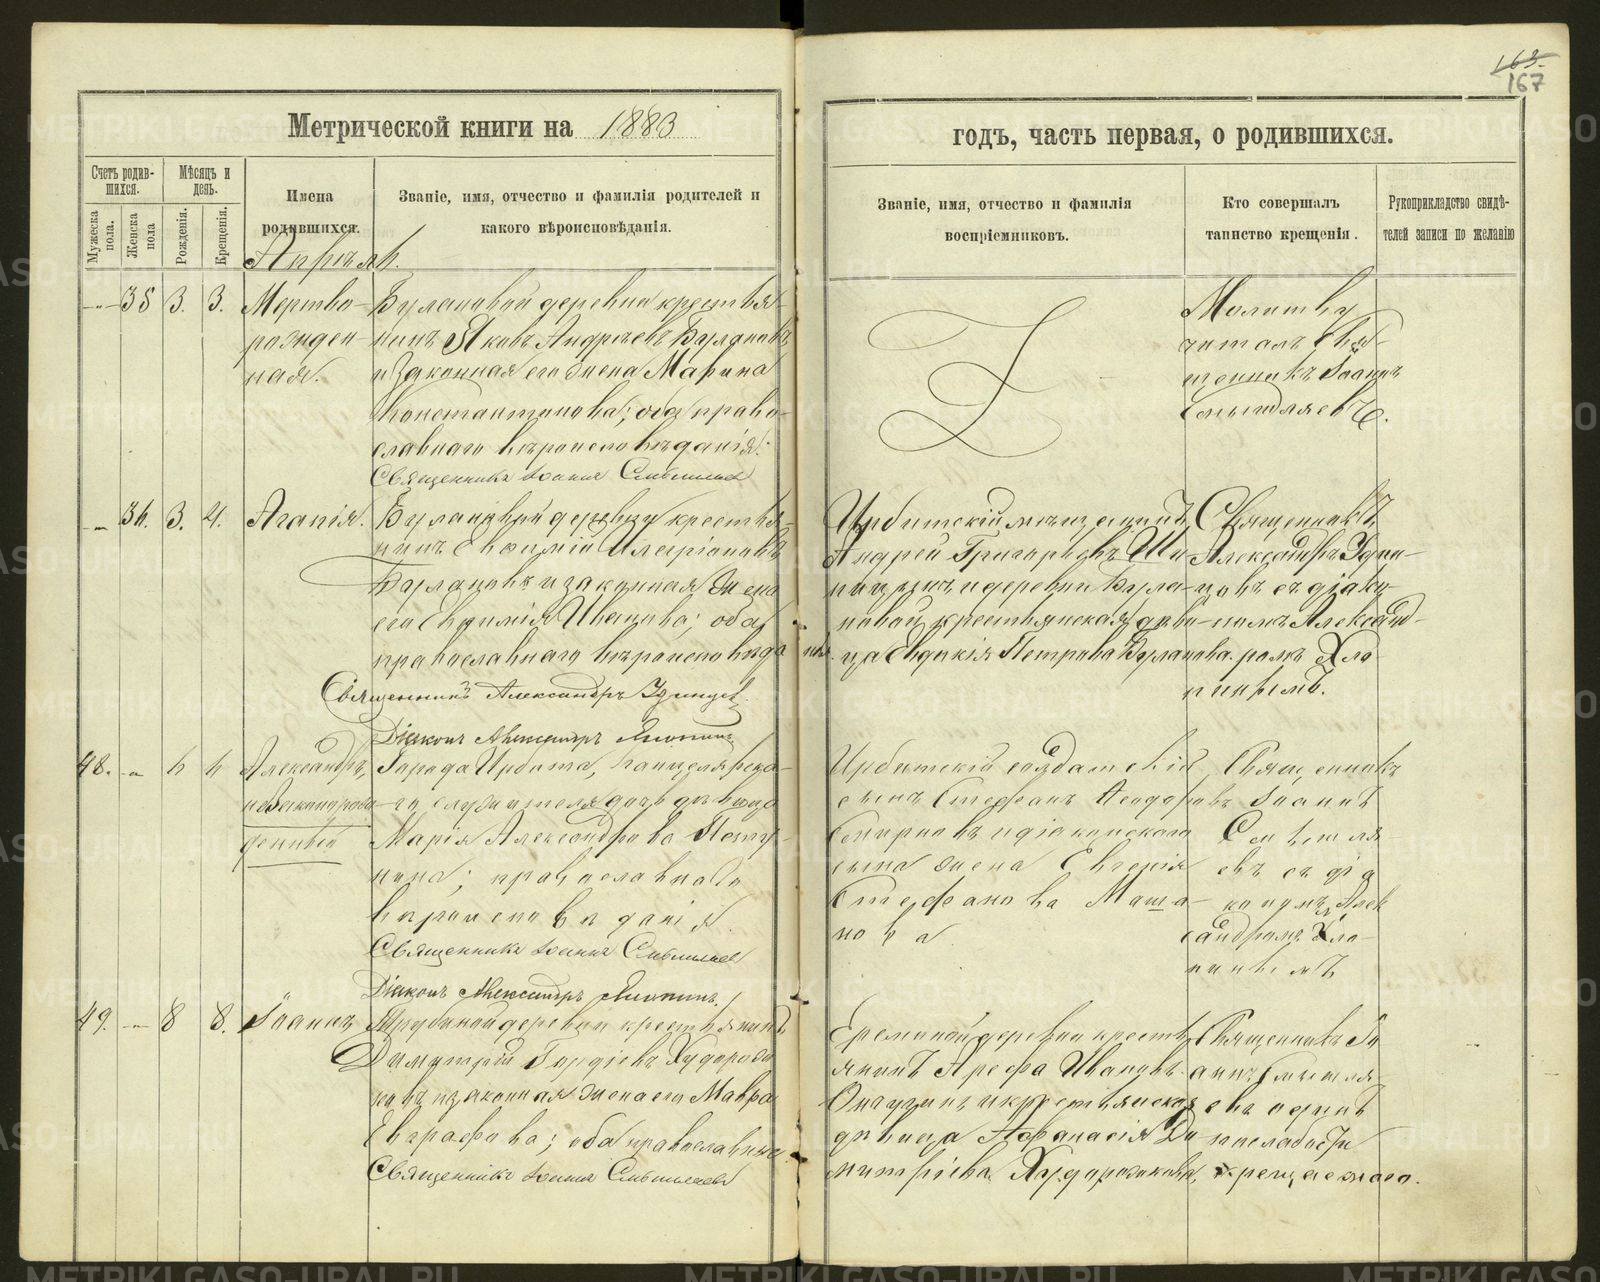 163.
167
Метрической книги на 1883
годъ, часть первая, о родившихся.
Счетъ родившихся.
Мужеска пола.
Женска пола
Мѣсяцъ и день.
Рожденія.
Крещенія.
Имена родившихся.
Званіе, имя, отчество и фамилія родителей и какого вѣроисповѣданія.
Званіе, имя, отчество и фамилія воспріемниковъ.
Кто совершалъ таинство крещенія.
Рукоприкладство свидѣтелей записи по желанію
Апрѣль.
35 3. 3.
Мертво-
рожден-
ная.
Булановой деревни крестья-
нинъ Яковъ Андреевъ Булановъ
и законная его жена Марина
Константинова; оба право-
славнаго вѣроисповѣданія.
Священникъ Іоаннъ Смышляевъ
Молитву
читалъ Свя-
щенникъ Іоаннъ
Смышляевъ.
36. 3. 4.
Агапія.
Булановой деревни крестья-
нинъ Евфимій Илларіоновъ
Булановъ и законная жена
его Евфимія Иванова; оба
православнаго вѣроисповѣданія.
Священникъ Александръ Удинцев
Діаконъ Александръ
Ирбитскій мѣщанинъ
Андрей Григорьевъ Ши-
пицынъ и деревни Була-
новой крестьянская дѣви-
ца Евдокія Петрова Буланова.
Священникъ
Александръ Удин-
цовъ съ діако-
номъ Александ-
ромъ Хло-
пинымъ.
48. 6 6
Александръ,
незаконорож-
денный
Города Ирбита, канцелярска-
го служителя дочь дѣвица
Марія Александрова
православнаго
вѣроисповѣданія.
Священникъ Іоаннъ Смышляев
Діаконъ Александръ
Ирбитскій солдатскій
сынъ Стефанъ Ѳеодоровъ
Смирновъ и діаконскаго
сына жена Евгенія
Стефанова Маша-
нова.
Священникъ
Іоаннъ
Смышля-
евъ съ діа-
кономъ Алек-
сандромъ Хло-
пинымъ
49. 8 8.
Іоаннъ
деревни крестьянинъ
Димитрій Гордіевъ Худорож-
ковъ и законная жена его Мавра
Евграфова; оба православныя.
Священникъ Іоаннъ Смышляевъ
Ереминой деревни кресть-
янинъ Арефа Ивановъ
и крестьянская
дѣвица Афанасія Ди-
митріева Худорожкова,
Священникъ Іо-
аннъ Смышля-
евъ одинъ
по слабости
крещаемаго.